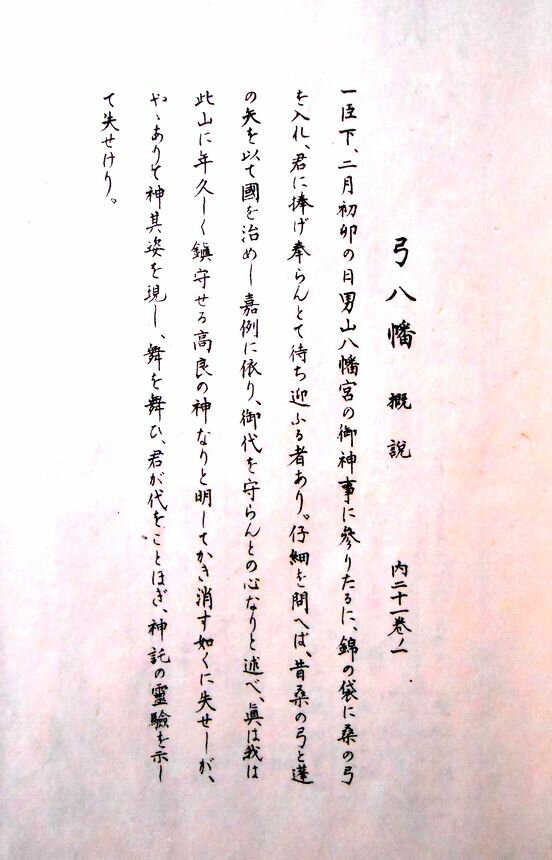 弓八幡 概説 内二十一巻ノ一
一臣下、二月初卯の日男山八幡宮の御神事に參りたるに、錦の袋に桑の弓
を入れ、君に捧げ奉らんとて待ち迎ふる者あり。仔細を問へば、昔桑の弓と蓬
の矢を以て國を治めし嘉例に依り、御代を守らんとの心なりと述べ、眞は我は
此山に年久しく鎮守せる高良の神なりと明してかき消す如くに失せしが、
やゝありて神其姿を現し、舞を舞ひ、君が代をことほぎ、神託の靈驗を示し
て失せけり。